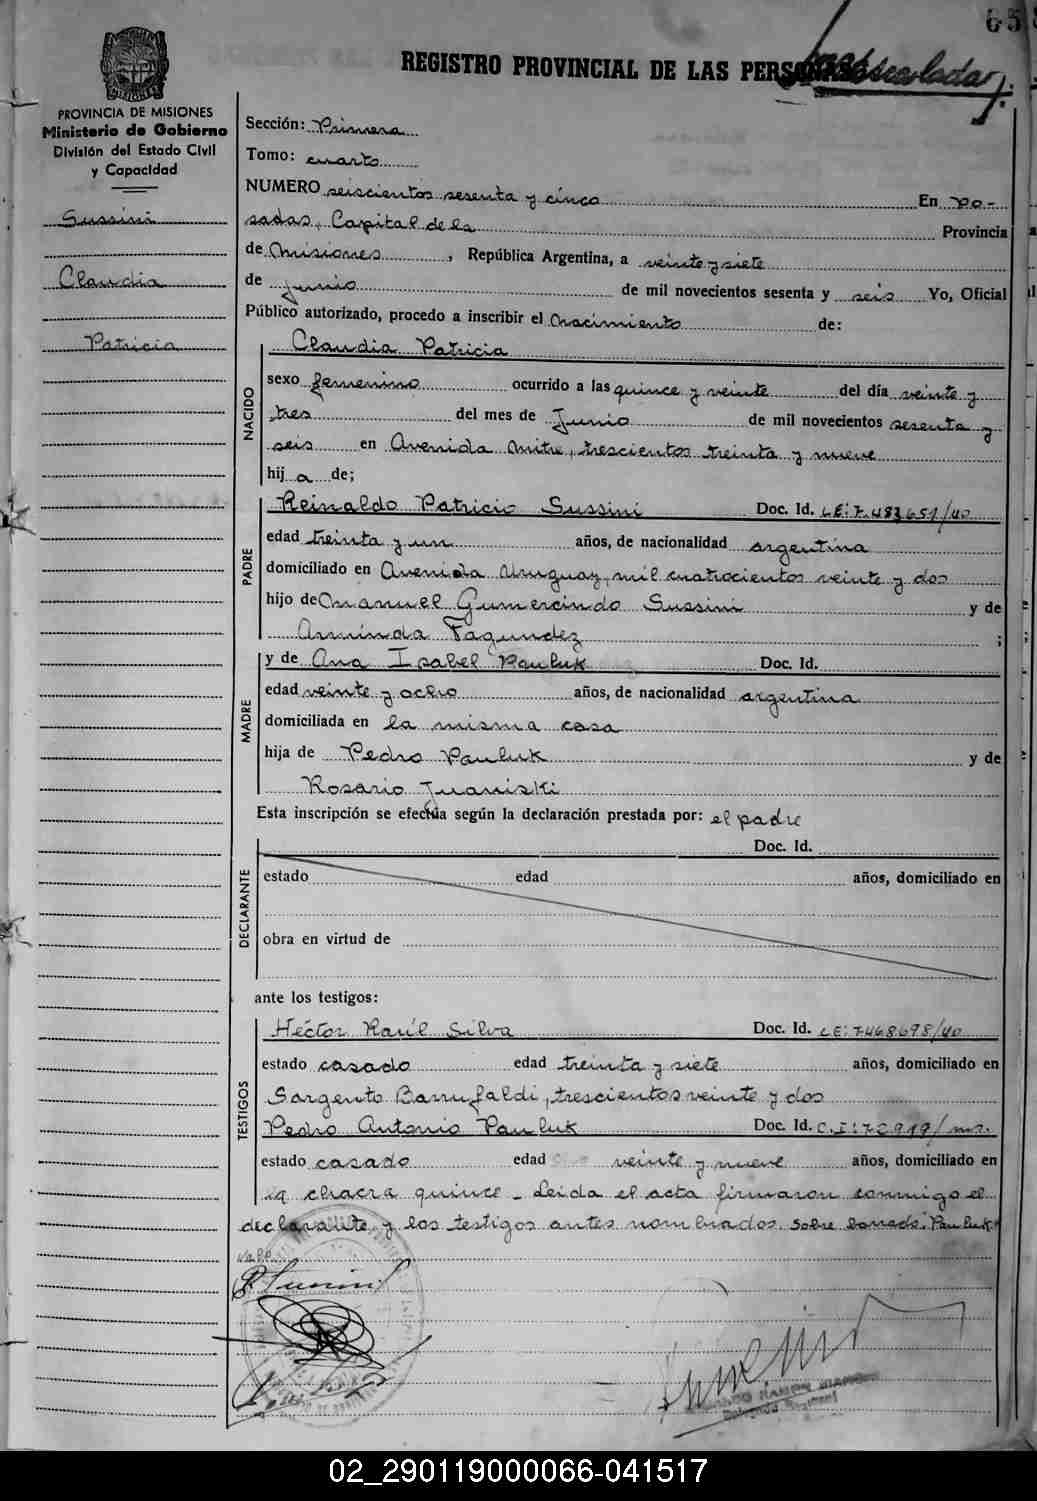 65
REGISTRO PROVINCIAL DE LAS PERSONAS
PROVINCIA DE MISIONES
Ministerio de Gobierno
División del Estado Civil
y Capacidad
Sussini
Claudia
Patricia
Sección: Primera
Tomo: cuarto
NUMERO seiscientos sesenta y cinco En Po-
sadas, Capital de la Provincia
de Misiones, República Argentina, a veinte y siete
de junio de mil novecientos sesenta y seis Yo, Oficial
Público autorizado, procedo a inscribir el nacimiento de:
NACIDO
Claudia Patricia
sexo femenino ocurrido a las quince y veinte del día veinte y
tres del mes de Junio de mil novecientos sesenta y
seis en Avenida Mitre, trescientos treinta y nueve
hij a de;
PADRE
Reinaldo Patricio Sussini Doc. Id. LE: 7.483651/40
edad treinta y un años, de nacionalidad argentina
domiciliado en Avenida Uruguay, mil cuatrocientos veinte y dos
hijo de Manuel Gumercindo Sussini y de
Arminda Fagundez ;
MADRE
y de Ana Isabel Pauluk Doc. Id.
edad veinte y ocho años, de nacionalidad argentina
domiciliada en la misma casa
hija de Pedro Pauluk y de
Rosario Juaniski
Esta inscripción se efectúa según la declaración prestada por: el padre
DECLARANTE
Doc. Id.
estado edad años, domiciliado en
obra en virtud de
ante los testigos:
TESTIGOS
Héctor Raúl Silva Doc. Id. LE: 7468698/40
estado casado edad treinta y siete años, domiciliado en
Sargento Barrufaldi, trescientos veinte y dos
Pedro Antonio Pauluk Doc. Id. C.I: 72919/ms.
estado casado edad veinte y nueve años, domiciliado en
la chacra quince - Leida el acta firmaron conmigo el
declarante y los testigos antes nombrados. Sobre borrado: Pauluk
Vale.
02_290119000066-041517